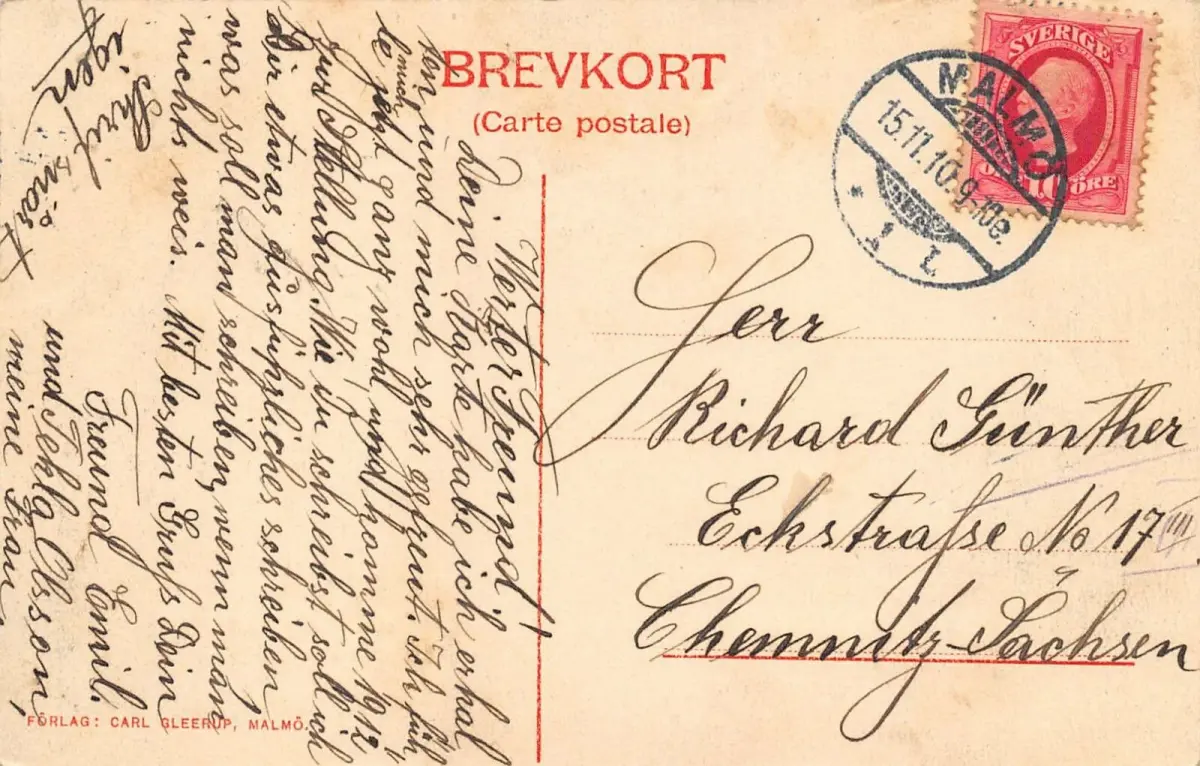 BREVKORT
(Carte postale)
SVERIGE
10
ÖRE
MALMÖ
15.11.10.9-10e.
* 1 L *
Herr
Richard Günther
Eckstraße No 17 III
Chemnitz-Sachsen
Werter Freund!
Deine Karte habe ich erhal
ten und mich sehr gefreut. Ich füh
le mich jetzt ganz wohl, und komme 1912
zur Stellung. Wie Du schreibst soll ich
Dir etwas Ausführliches schreiben,
was soll man schreiben, wenn man
nichts weis. Mit besten Gruß Dein
Freund Emil.
und Tekla Olsson,
meine Frau,
Skrif snart
igen
FÖRLAG: CARL GLEERUP, MALMÖ.